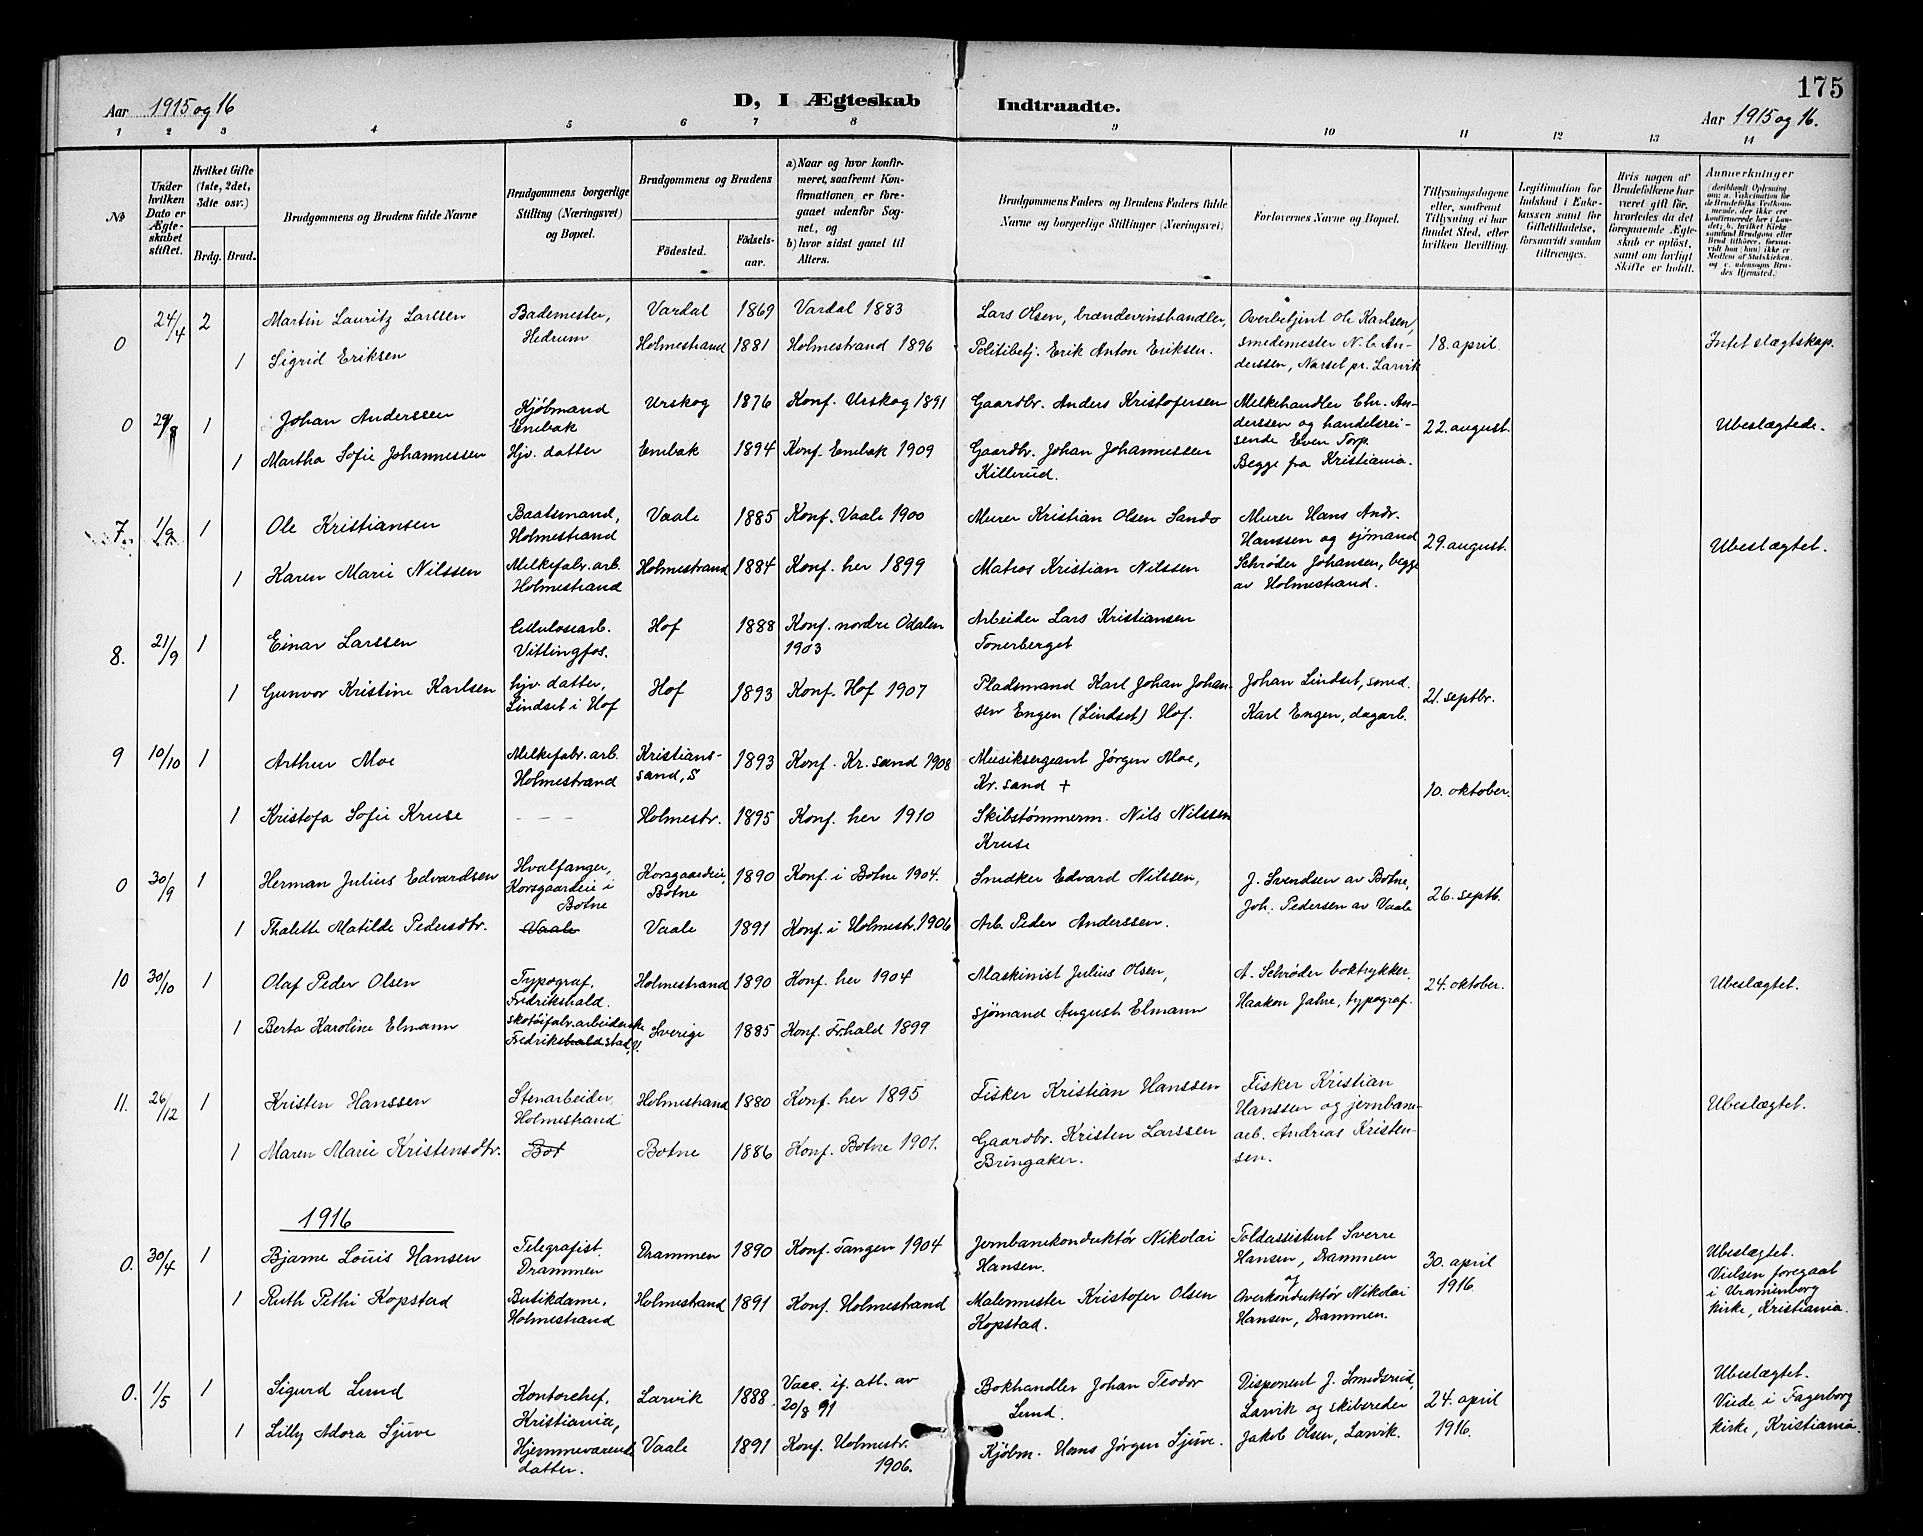 175
Aar 1915 og 16 D, I Ægteskab Indtraadte. Aar 1915 og 16.
1 2 3 4 5 6 7 8 9 10 11 12 13 14
No
Under hvilken Dato er Ægteskabet stiftet.
Hvilket Gifte (1ste, 2det, 3dte osv.)
Brdg. Brud.
Brudgommens og Brudens fulde Navne
Brudgommens borgerlige Stilling (Næringsvei) og Bopæl.
Brudgommens og Brudens
Födested. Födsels-aar.
a) Naar og hvor konfirmeret, saafremt Konfirmationen er foregaaet udenfor Sognet, og
b) hvor sidst gaaet til Alters.
Brudgommens Faders og Brudens Faders fulde Navne og borgerlige Stillinger (Næringsvei)
Forlovernes Navne og Bopæl.
Tillysningsdagene eller, saafremt Tillysning ei har fundet Sted, efter hvilken Bevilling.
Legitimation for Indskud i Enkekassen samt for Giftetilladelse, forsaavidt saadan tiltrænges.
Hvis nogen af Brudefolkene har været gift för, hvorledes da det foregaaende Ægteskab er oplöst, samt om lovligt Skifte er holdt.
Anmerkninger
0 24/4 2 Martin Lauritz Larssen Bademester, Hedrum Vardal 1869 Vardal 1883 Lars Olsen, brændevinshandler, Overbetjent Ole Karlsen, smedemester N. C. Anderssen, Narset pr. Larvik 18. april. Intet slægtskap.
1 Sigrid Eriksen Holmestrand 1881 Holmestrand 1896 Politibetj. Erik Anton Eriksen.
0 29/8 1 Johan Anderssen Kjøbmand Enebak Urskog 1876 Konf. Urskog 1891 Gaardbr. Anders Kristofersen Melkehandler Chr. Anderssen og handelsreisende Even Torp. Begge fra Kristiania. 22. august. Ubeslægtede.
1 Martha Sofie Johannessen Hjv. datter Enebak 1894 Konf. Enebak 1909 Gaardbr. Johan Johannessen Killerud.
7. 1/9. 1 Ole Kristiansen Baatsmand, Holmestrand Vaale 1885 Konf. Vaale 1900 Murer Kristian Olsen Sando Murer Hans Andr. Hanssen og sjømand Schrøder Johansen, begge av Holmestrand. 29. august. Ubeslægtet.
1 Karen Marie Nilssen Melkefabr. arb. Holmestrand Holmestrand 1884 Konf. her 1899 Matros Kristian Nilssen
8. 21/9 1 Einar Larssen Cellulosearb. Vittingfos. Hof 1888 Konf. nordre Odalen 1903 Arbeider Lars Kristiansen Tonerberget
1 Gunvor Kristine Karlsen hjv. datter, Lindset i Hof Hof 1893 Konf. Hof 1907 Pladsmand Karl Johan Johansen Engen (Lindset) Hof. Johan Lindset, smed. Karl Engen, dagarb. 21. septbr.
9 10/10 1 Arthur Moe Melkefabr. arb. Holmestrand Kristianssand, S 1893 Konf. Kr. sand 1908 Musiksergeant Jørgen Moe, Kr. sand + 10. oktober.
1 Kristofa Sofie Kruse — — — Holmestr. 1895 Konf. her 1910 Skibstømmerm. Nils Nilssen Kruse
0 30/9 1 Herman Julius Edvardsen Hvalfanger, Korsgaardeie i Botne Korsgaardeie, Botne 1890 Konf. i Botne 1904. Snedker Edvard Nilssen, J. Svendsen av Botne, Joh. Pedersen av Vaale 26. septb.
1 Thalette Matilde Pedersdtr. Vaale Vaale 1891 Konf. i Holmestr. 1906 Arb. Peder Anderssen.
10 30/10 1 Olaf Peder Olsen Typograf, Fredrikshald. Holmestrand 1890 Konf. her 1904 Maskinist Julius Olsen, A. Schrøder boktrykker, Haakon Jahre, typograf. 24. oktober. Ubeslægtet.
1 Berta Karoline Elmann skotøifabr. arbeiderske Fredrikshald stad, Sverige 1885 Konf. Fr.hald 1899 sjømand August Elmann
11. 26/12 1 Kristen Hanssen Stenarbeider, Holmestrand Holmestrand 1880 Konf. her 1895 Fisker Kristian Hanssen Fisker Kristian Hanssen og jernbanearb. Andreas Kristensen. Ubeslægtet.
1 Maren Marie Kristensdtr. Bot Botne 1886 Konf. Botne 1901. Gaardbr. Kristen Larssen Bringaker.
1916
0. 30/4 1 Bjarne Louis Hansen Telegrafist. Drammen Drammen 1890 Konf. Tangen 1904 Jernbanekonduktør Nikolai Hansen. Toldassistent Sverre Hansen, Drammen og Overkonduktør Nikolai Hansen, Drammen. 30. april 1916. Ubeslægtet. Vielsen foregaat i Uranienborg kirke, Kristiania.
1 Ruth Pethi Kopstad Butikdame, Holmestrand Holmestrand 1891 Konf. Holmestrand Malermester Kristofer Olsen Kopstad.
0. 1/5 1 Sigurd Lund Kontorchef, Kristiania, Larvik 1888 Vacc. if. att. av 20/8 91 Bokhandler Johan Teodor Lund. Disponent J. Smedsrud, Larvik og skibsreder Jakob Olsen, Larvik. 24. april 1916. Ubeslægtet. Viede i Fagerborg kirke, Kristiania
1 Lilly Adora Sjuve Hjemmeværende datter. Vaale 1891 Konf. Holmestr. 1906. Kjøbm. Hans Jørgen Sjuve.